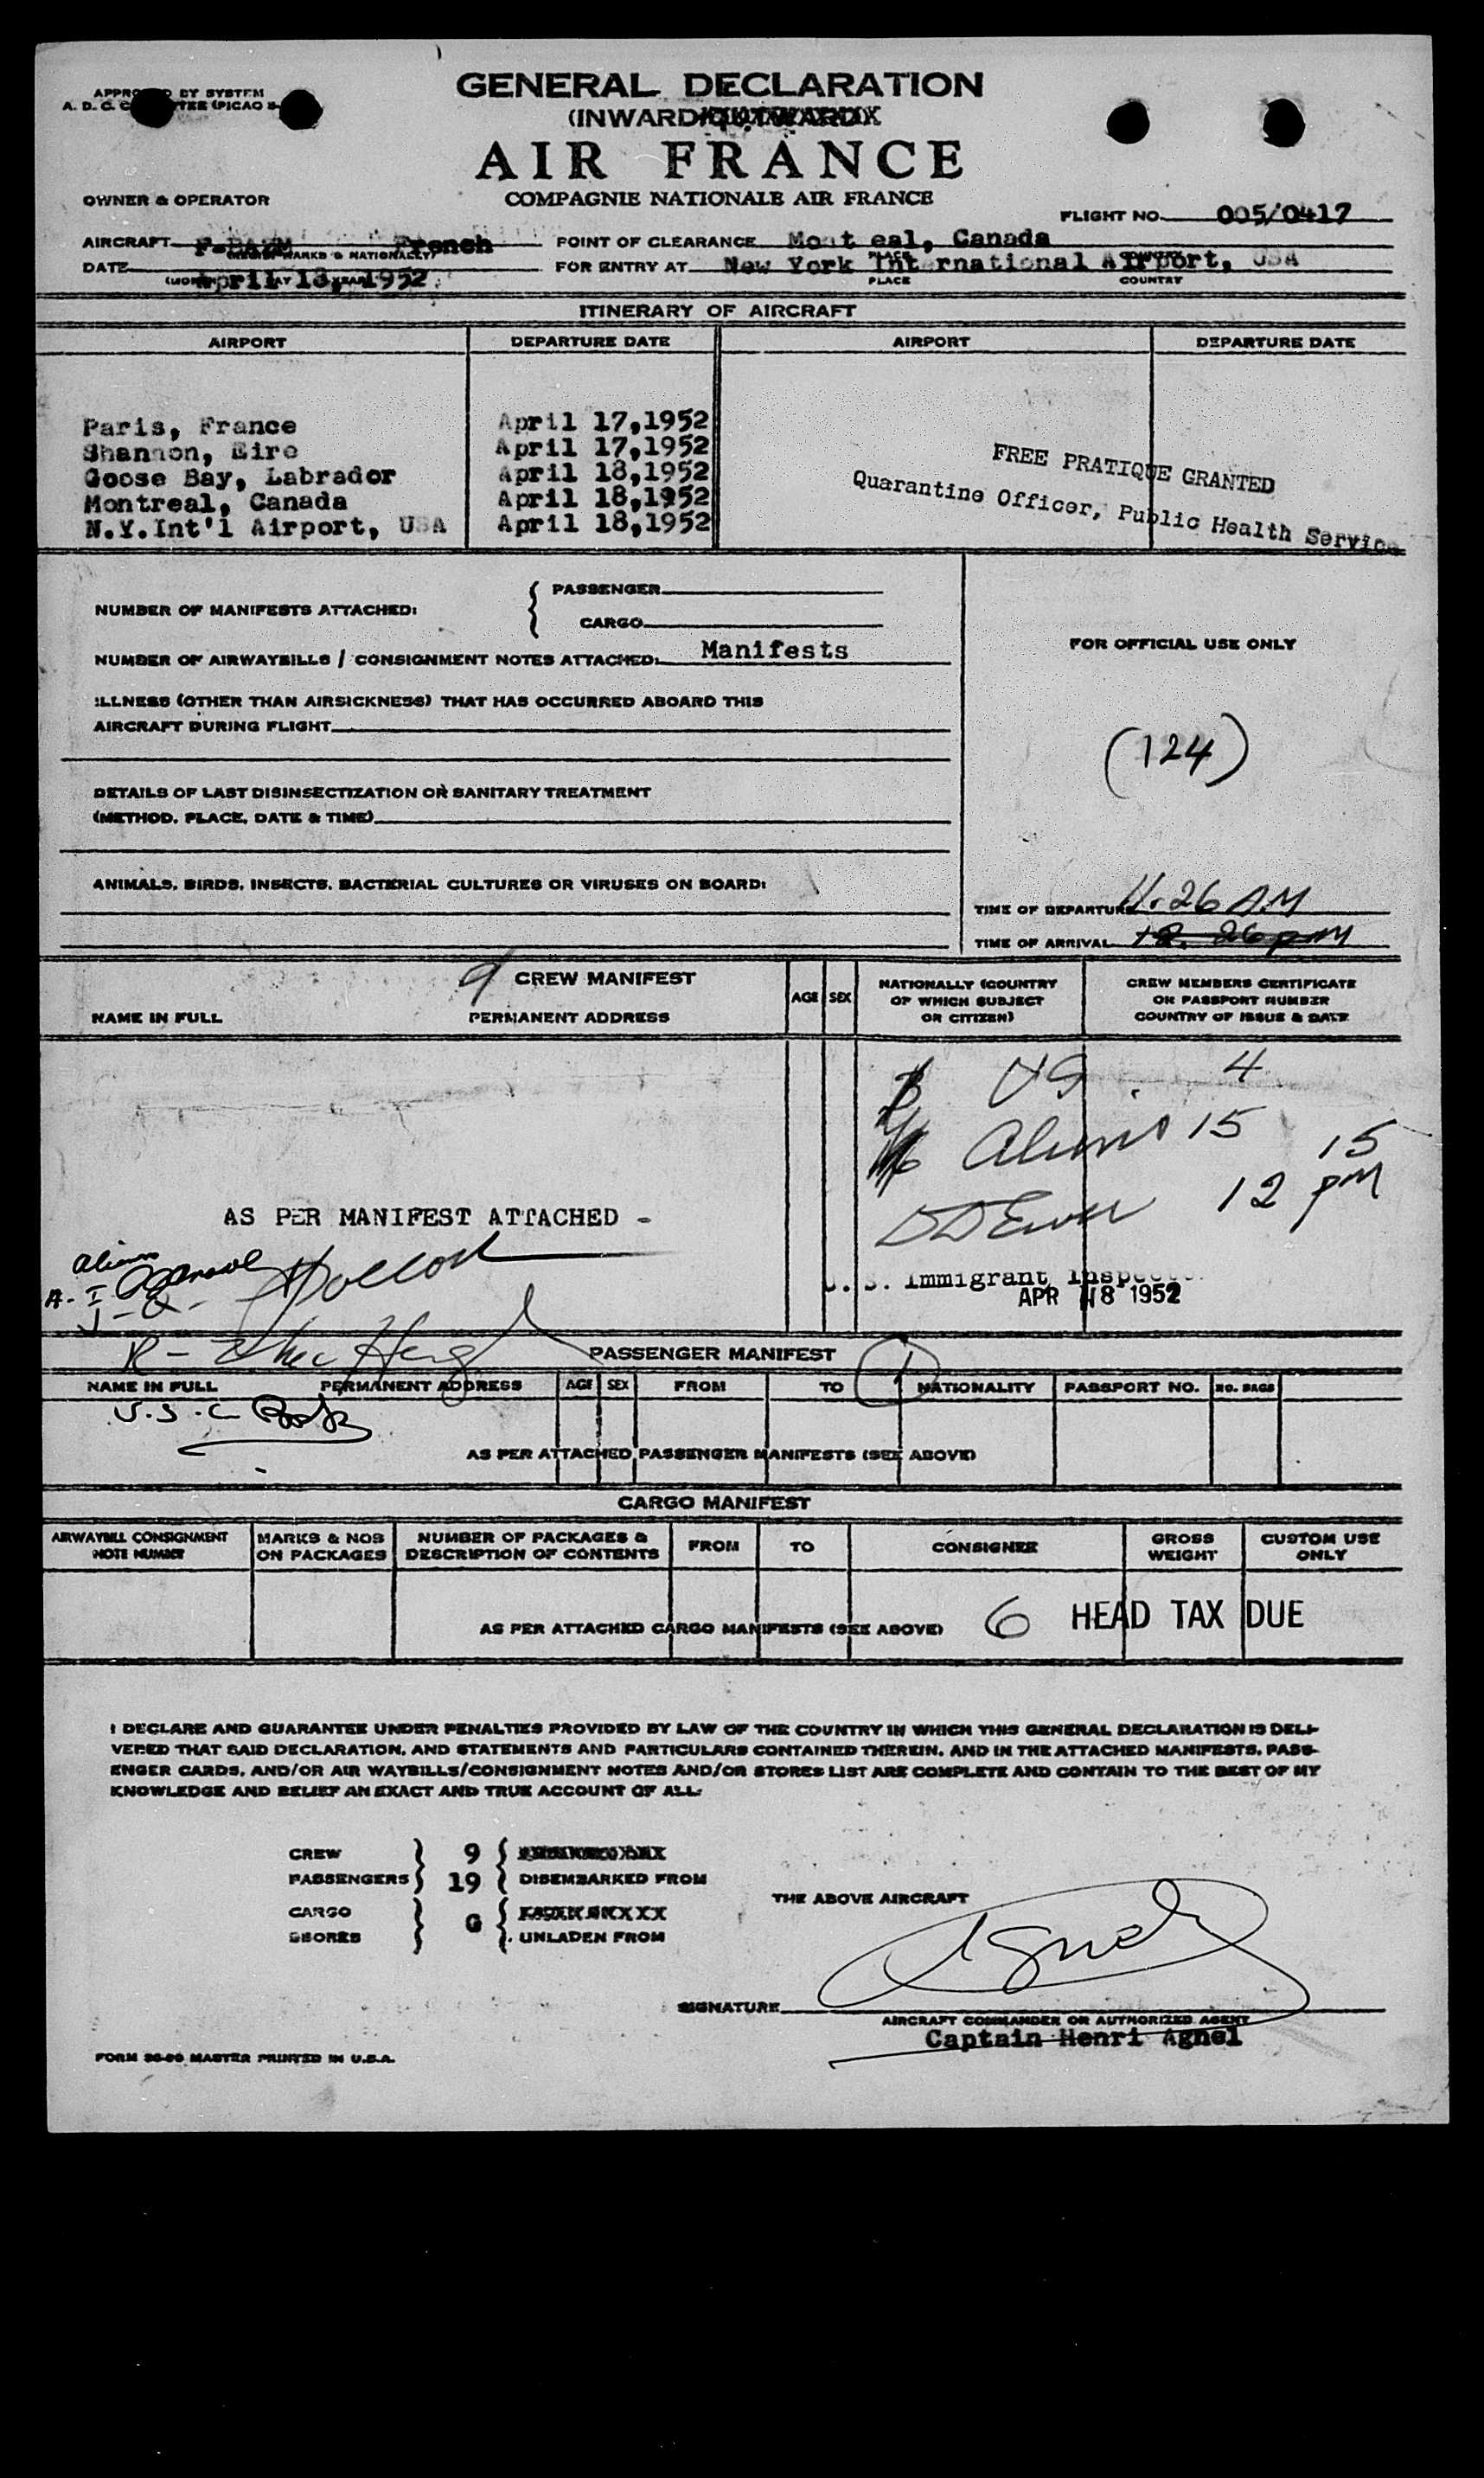 GENERAL DECLARATION
(INWARD
AIR FRANCE
COMPAGNIE NATIONALE AIR FRANCE
APPROVED BY SYSTEM
A. D. C. (PICAO
OWNER & OPERATOR
FLIGHT NO. 005/0417
AIRCRAFT French
POINT OF CLEARANCE Mont eal, Canada
DATE April 18, 1952
FOR ENTRY AT New York International Airport, USA
PLACE COUNTRY
ITINERARY OF AIRCRAFT
AIRPORT DEPARTURE DATE AIRPORT DEPARTURE DATE
Paris, France April 17,1952
Shannon, Eire April 17,1952
Goose Bay, Labrador April 18,1952
Montreal, Canada April 18,1952
N.Y.Int'l Airport, USA April 18,1952
FREE PRATIQUE GRANTED
Quarantine Officer, Public Health Service
NUMBER OF MANIFESTS ATTACHED: { PASSENGER
CARGO
NUMBER OF AIRWAYBILLS / CONSIGNMENT NOTES ATTACHED: Manifests
FOR OFFICIAL USE ONLY
ILLNESS (OTHER THAN AIRSICKNESS) THAT HAS OCCURRED ABOARD THIS
AIRCRAFT DURING FLIGHT
(124)
DETAILS OF LAST DISINSECTIZATION OR SANITARY TREATMENT
(METHOD, PLACE, DATE & TIME)
ANIMALS, BIRDS, INSECTS, BACTERIAL CULTURES OR VIRUSES ON BOARD:
TIME OF DEPARTURE 11.26 AM
TIME OF ARRIVAL 12.26 PM
9 CREW MANIFEST
NAME IN FULL PERMANENT ADDRESS AGE SEX
NATIONALLY (COUNTRY OF WHICH SUBJECT OR CITIZEN)
CREW MEMBERS CERTIFICATE OR PASSPORT NUMBER COUNTRY OF ISSUE & DATE
US 4
Aliens 15 15
12 PM
AS PER MANIFEST ATTACHED -
Immigrant Inspector
APR 18 1952
PASSENGER MANIFEST
NAME IN FULL PERMANENT ADDRESS AGE SEX FROM TO NATIONALITY PASSPORT NO. NO. BAGS
U.S.C
AS PER ATTACHED PASSENGER MANIFESTS (SEE ABOVE)
CARGO MANIFEST
AIRWAYBILL CONSIGNMENT NOTE NUMBER
MARKS & NOS ON PACKAGES
NUMBER OF PACKAGES & DESCRIPTION OF CONTENTS
FROM TO CONSIGNEE
GROSS WEIGHT
CUSTOM USE ONLY
AS PER ATTACHED CARGO MANIFESTS (SEE ABOVE) 6 HEAD TAX DUE
I DECLARE AND GUARANTEE UNDER PENALTIES PROVIDED BY LAW OF THE COUNTRY IN WHICH THIS GENERAL DECLARATION IS DELI-
VERED THAT SAID DECLARATION, AND STATEMENTS AND PARTICULARS CONTAINED THEREIN, AND IN THE ATTACHED MANIFESTS, PASS-
ENGER CARDS, AND/OR AIR WAYBILLS/CONSIGNMENT NOTES AND/OR STORES LIST ARE COMPLETE AND CONTAIN TO THE BEST OF MY
KNOWLEDGE AND BELIEF AN EXACT AND TRUE ACCOUNT OF ALL:
CREW 9
PASSENGERS 19 DISEMBARKED FROM
CARGO
SHORES G UNLADEN FROM
THE ABOVE AIRCRAFT
SIGNATURE Agnel
AIRCRAFT COMMANDER OR AUTHORIZED AGENT
Captain Henri Agnel
FORM 36-90 MASTER PRINTED IN U.S.A.